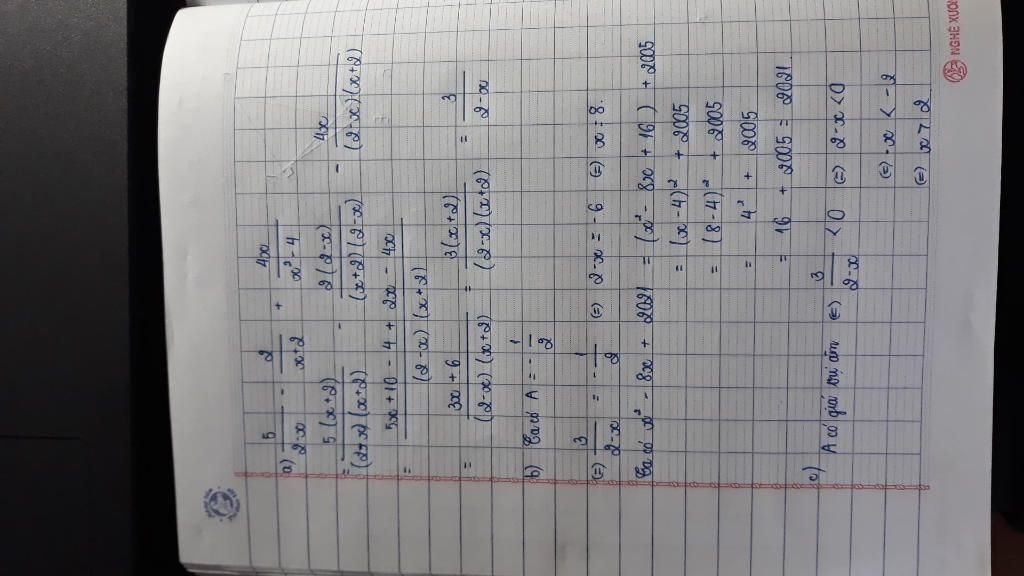 a) 5/(2-x) - 2/(x+2) + 4x/(x² - 4)
= 5(x+2)/((2-x)(x+2)) - 2(2-x)/((x+2)(2-x)) - 4x/((2-x)(x+2))
= (5x + 10 - 4 + 2x - 4x)/((2-x)(x+2))
= (3x + 6)/((2-x)(x+2)) = 3(x+2)/((2-x)(x+2)) = 3/(2-x)
b) Ta có A = - 1/2
(=) 3/(2-x) = - 1/2 (=) 2-x = -6 (=) x = 8.
Ta có x² - 8x + 2021 = (x² - 8x + 16) + 2005
= (x-4)² + 2005
= (8-4)² + 2005
= 4² + 2005
= 16 + 2005 = 2021.
c) A có giá trị âm (=) 3/(2-x) < 0 (=) 2-x < 0
(=) -x < -2
(=) x > 2
NGHÉ XUÔI